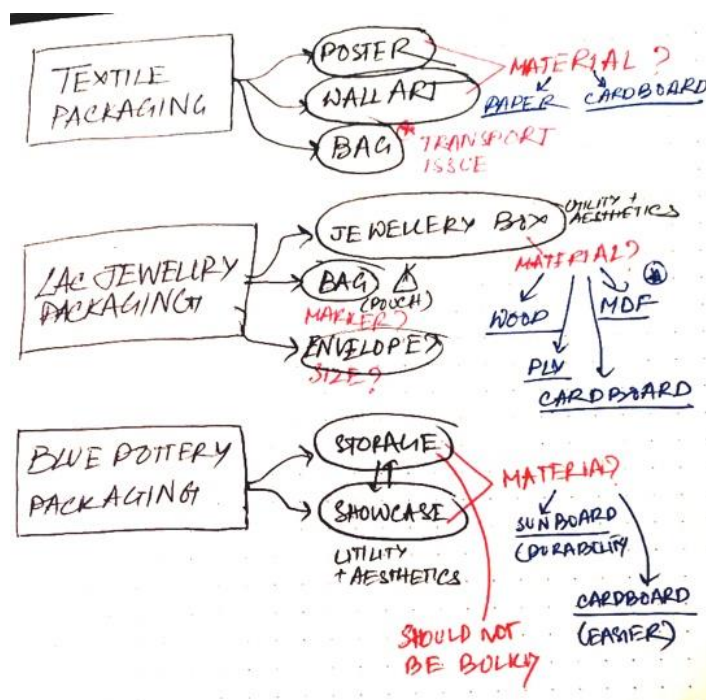 TEXTILE
PACKAGING
POSTER
WALL ART
BAG
MATERIAL?
PAPER
CARDBOARD
* TRANSPORT
ISSUE
LAC JEWELLRY
PACKAGING
JEWELLERY BOX
UTILITY +
AESTHETICS
BAG
(POUCH)
MARKER?
ENVELOPE?
SIZE?
MATERIAL?
WOOD
PLY
CARDBOARD
MDF
BLUE POTTERY
PACKAGING
STORAGE
SHOWCASE
UTILITY
+ AESTHETICS
MATERIAL?
SUNBOARD
(DURABILITY
CARDBOARD
(EASIER)
SHOULD NOT
BE BULKY